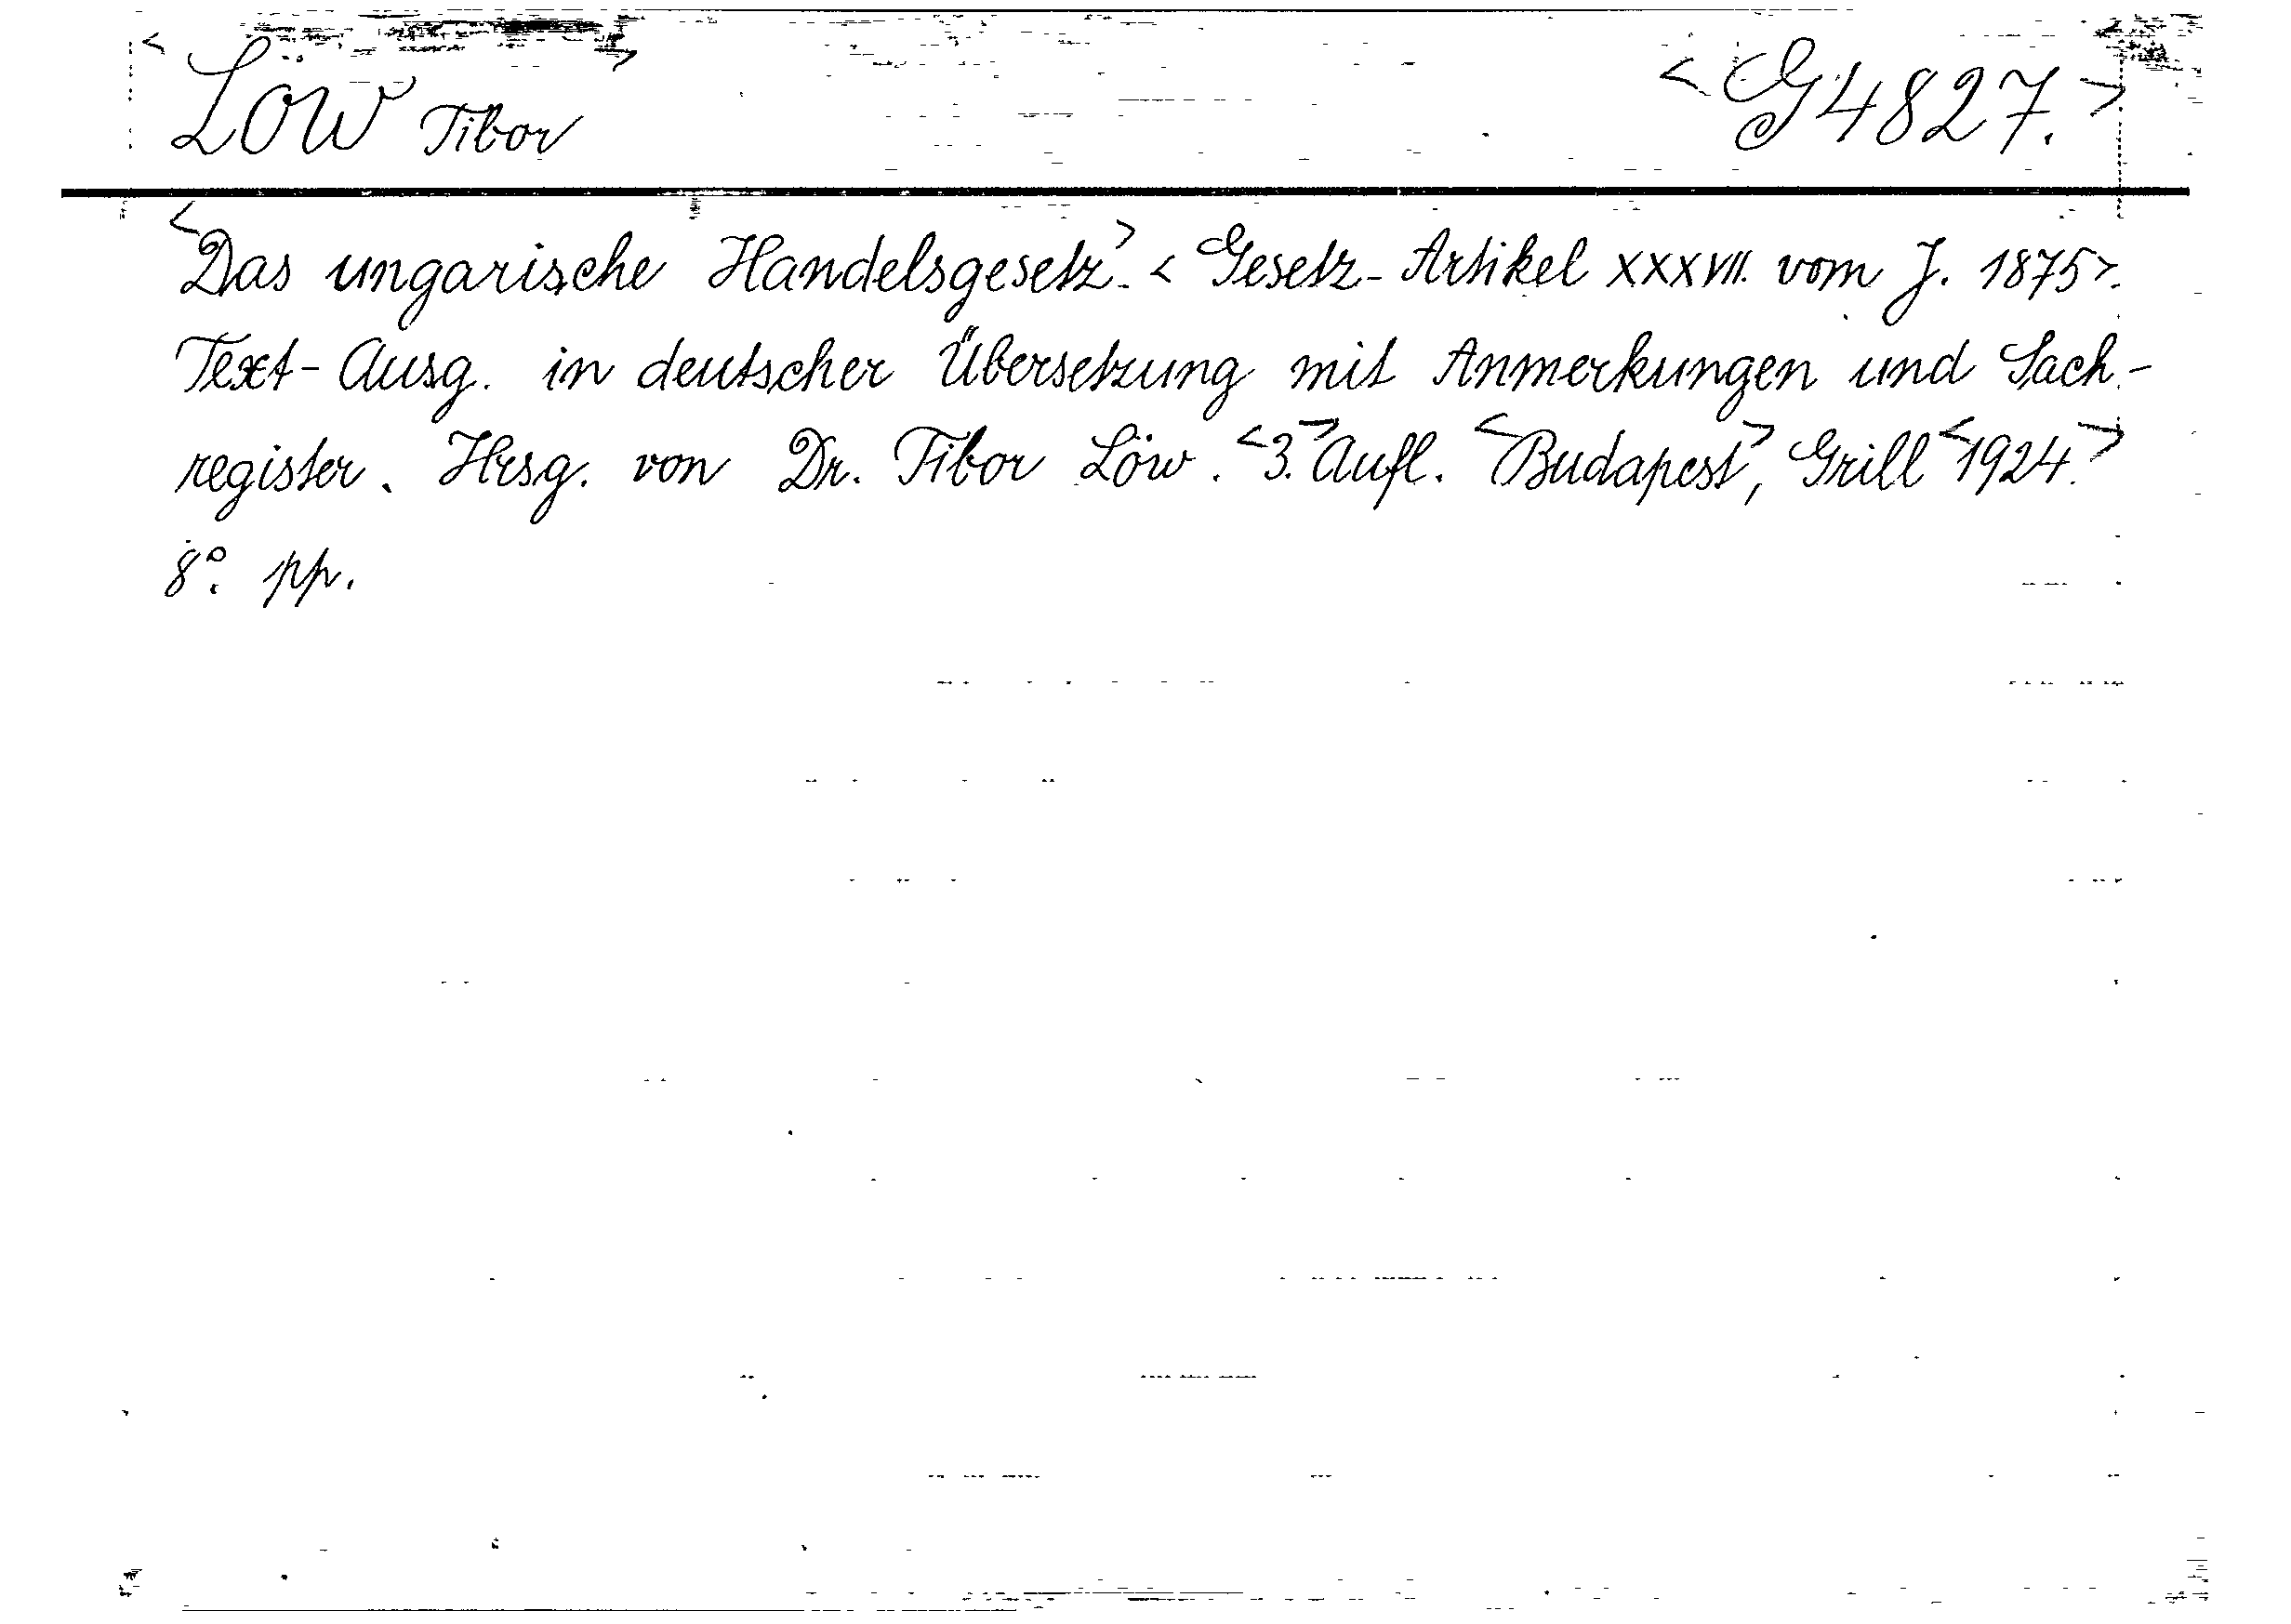 <Löw Tibor> <G 4827.>
<Das ungarische Handelsgesetz>. < Gesetz-Artikel XXXVII. vom J. 1875>.
Text-Ausg. in deutscher Übersetzung mit Anmerkungen und Sach-
register. Hrsg. von Dr. Tibor Löw. <3.> Aufl. <Budapest>, Grill <1924.>
8°. pp.